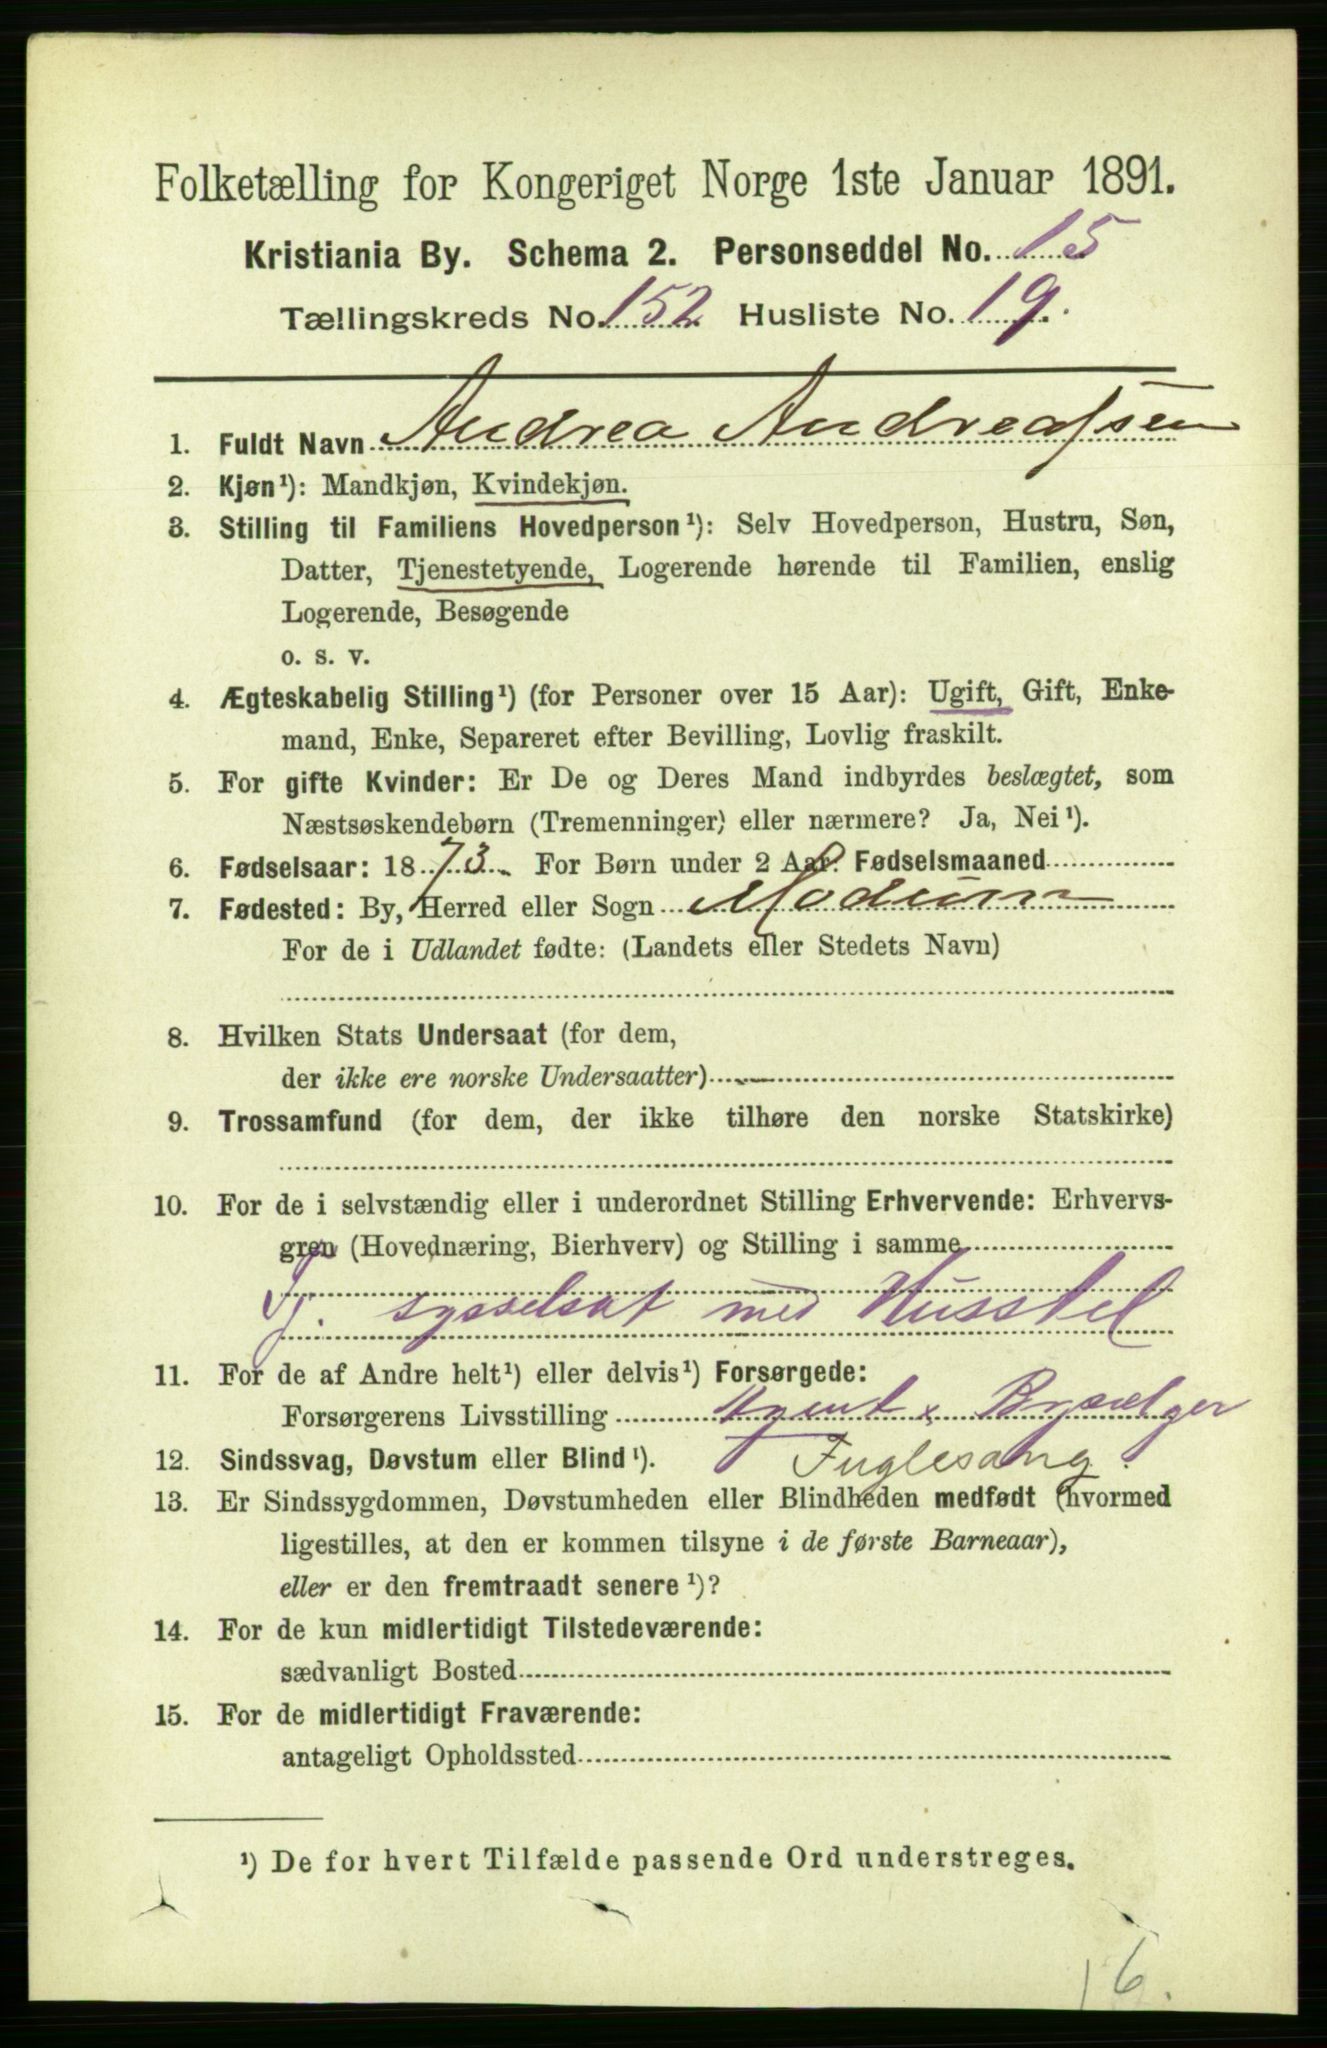 Folketælling for Kongeriget Norge 1ste Januar 1891.
Kristiania By. Schema 2. Personseddel No. 15
Tællingskreds No. 152 Husliste No. 19.
1. Fuldt Navn Andrea Andreassen
2. Kjøn¹): Mandkjøn, Kvindekjøn.
3. Stilling til Familiens Hovedperson¹): Selv Hovedperson, Hustru, Søn,
Datter, Tjenestetyende, Logerende hørende til Familien, enslig
Logerende, Besøgende
o. s. v.
4. Ægteskabelig Stilling¹) (for Personer over 15 Aar): Ugift, Gift, Enke-
mand, Enke, Separeret efter Bevilling, Lovlig fraskilt.
5. For gifte Kvinder: Er De og Deres Mand indbyrdes beslægtet, som
Næstsøskendebørn (Tremenninger) eller nærmere? Ja, Nei¹).
6. Fødselsaar: 1873. For Børn under 2 Aar: Fødselsmaaned
7. Fødested: By, Herred eller Sogn Modum
For de i Udlandet fødte: (Landets eller Stedets Navn)
8. Hvilken Stats Undersaat (for dem,
der ikke ere norske Undersaatter)
9. Trossamfund (for dem, der ikke tilhøre den norske Statskirke)
10. For de i selvstændig eller i underordnet Stilling Erhvervende: Erhvervs-
gren (Hovednæring, Bierhverv) og Stilling i samme
Tj. sysselsat med Husstel
11. For de af Andre helt¹) eller delvis¹) Forsørgede:
Forsørgerens Livsstilling Agent
12. Sindssvag, Døvstum eller Blind¹). Fuglesang.
13. Er Sindssygdommen, Døvstumheden eller Blindheden medfødt (hvormed
ligestilles, at den er kommen tilsyne i de første Barneaar),
eller er den fremtraadt senere¹)?
14. For de kun midlertidigt Tilstedeværende:
sædvanligt Bosted
15. For de midlertidigt Fraværende:
antageligt Opholdssted
¹) De for hvert Tilfælde passende Ord understreges.
16.